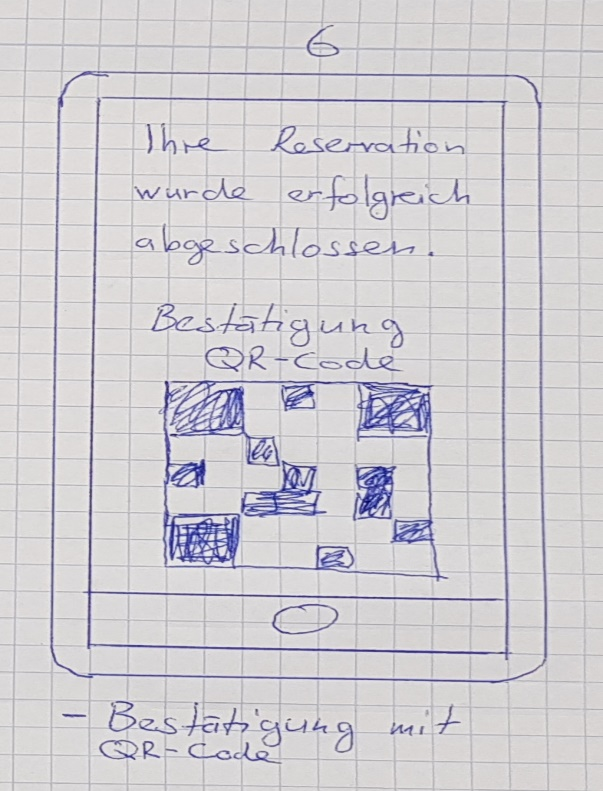 6
Ihre Reservation
wurde erfolgreich
abgeschlossen.
Bestätigung
QR-Code
- Bestätigung mit
QR-Code